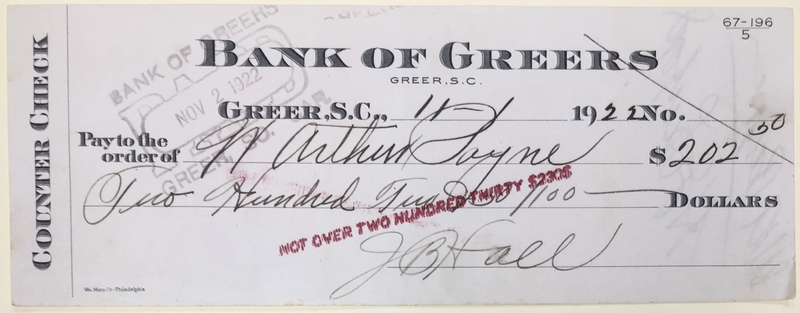 COUNTER CHECK
67-196
5
BANK OF GREERS
GREER, S.C.
BANK OF GREERS
PAID
NOV 2 1922
GREER, S.C.
GREER, S.C., 11-1 1922 No.
Pay to the order of W Arthur Payne $ 202 50
Two Hundred Two & 50/100 DOLLARS
NOT OVER TWO HUNDRED THIRTY $230$
J B Hall
Wm. Mann Co.-Philadelphia